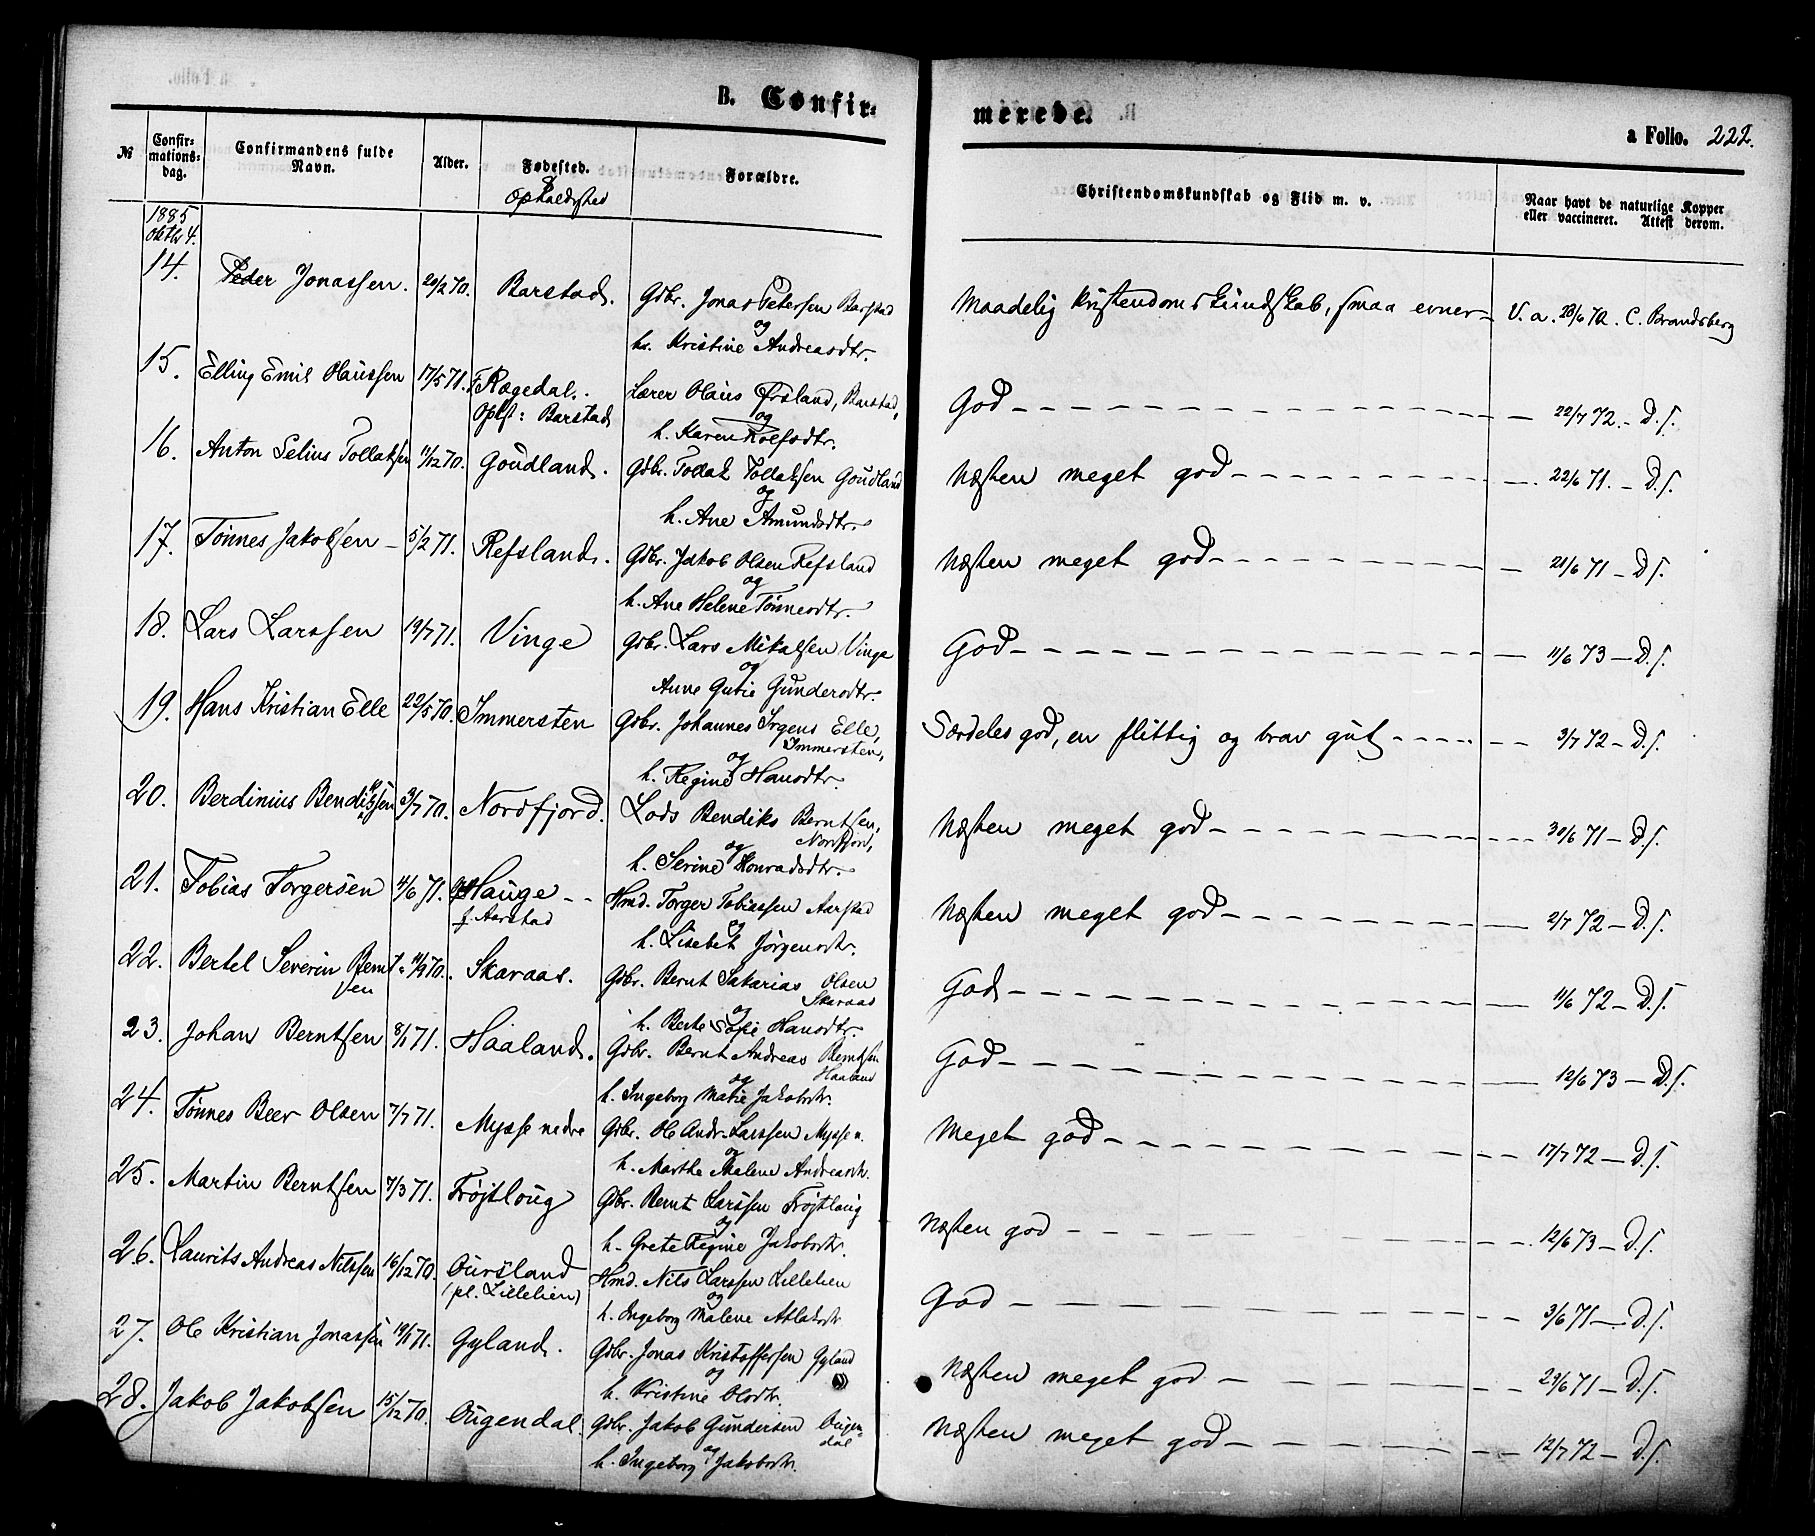 B. Confir-
merede.
a Folio. 222.
№ Confir-mations-dag. Confirmandens fulde Navn. Alder. Fødested. & Opholdssted Forældre. Christendomskundskab og Flid m. v. Naar havt de naturlige Kopper eller vaccineret. Attest derom.
1885
Oktbr 4.
14. Peder Jonassen. 20/2 70. Barstad. Gdbr. Jonas Petersen Barstad Maadelig kristendomskundskab, smaa evner V. a. 28/6 72. C. Brandsberg
og
h. Kristine Andreasdtr.
15. Elling Emil Olaussen 17/5 71. F. Rægedal. Lærer Olaus Ørsland, Barstad, God 22/7 72. - D.s.
Opst: Barstad og
h. Karen Rolfsdtr.
16. Anton Selius Tollaksen 11/12 70. Goudland. Gdbr. Tollak Tollaksen Goudland Næsten meget god 22/6 71. - D.s.
og
h. Ane Amundsdtr.
17. Tønnes Jakobsen 5/2 71. Refsland. Gdbr. Jakob Olsen Refsland Næsten meget god 21/6 71 - D.s.
og
h. Ane Helene Tønnesdtr.
18. Lars Larssen 19/7 71. Vinge Gdbr. Lars Mikalsen Vinge God 11/6 73 - D.s.
og
Anne Gutie Gundersdtr.
19. Hans Kristian Elle 22/5 70. Immersten Gdbr. Johannes Irgens Elle, Særdeles god, en flittig og brav gut 3/7 72 - D.s.
Immersten,
og
h. Regine Hansdtr.
20. Berdinius Bendiksen 3/7 70. Nordfjord. Lods Bendiks Berntsen, Næsten meget god 30/6 71 - D.s.
Nordfjord,
og
h. Serine Konradsdtr.
21. Tobias Torgersen 11/6 71. Hauge Hmd. Torger Tobiassen Aarstad Næsten meget god 2/7 72 - D.s.
f. Aarstad og
h. Lisebet Jørgensdtr.
22. Bertel Severin Bernt- 11/9 70. Skaraas. Gdbr. Bernt Sakarias Olsen God 11/6 72 - D.s.
sen Skaraas
og
h. Berte Sofie Hansdtr.
23. Johan Berntsen 8/1 71. Haaland. Gdbr. Bernt Andreas Berntsen God 12/6 73 - D.s.
Haaland
og
h. Ingeborg Marie Jakobsdtr.
24. Tønnes Beer Olsen 7/7 71. Mysse nedre Gdbr. Ole Andr. Larssen Mysse n. Meget god 17/7 72 - D.s.
og
h. Marthe Malene Andreasdtr.
25. Martin Berntsen 7/3 71. Frøjtloug Gdbr. Bernt Larssen Frøjtloug Næsten god 12/6 73 - D.s.
og
h. Grete Regine Jakobsdtr.
26. Laurits Andreas Nilssen 16/12 70. Oursland Hmd. Nils Larssen Lillelien God 3/6 71 - D.s.
(pl. Lillelien) og
h. Ingeborg Malene Atlaksdtr
27. Ole Kristian Jonassen 19/1 71. Gyland. Gdbr. Jonas Kristoffersen Gyland Næsten meget god 29/6 71 - D.s.
og
h. Kristine Olsdtr.
28. Jakob Jakobsen 15/12 70. Ougendal. Gdbr. Jakob Gundersen Ougen- Næsten meget god 12/7 72 - D.s.
dal
og
h. Ingeborg Jakobsdtr.